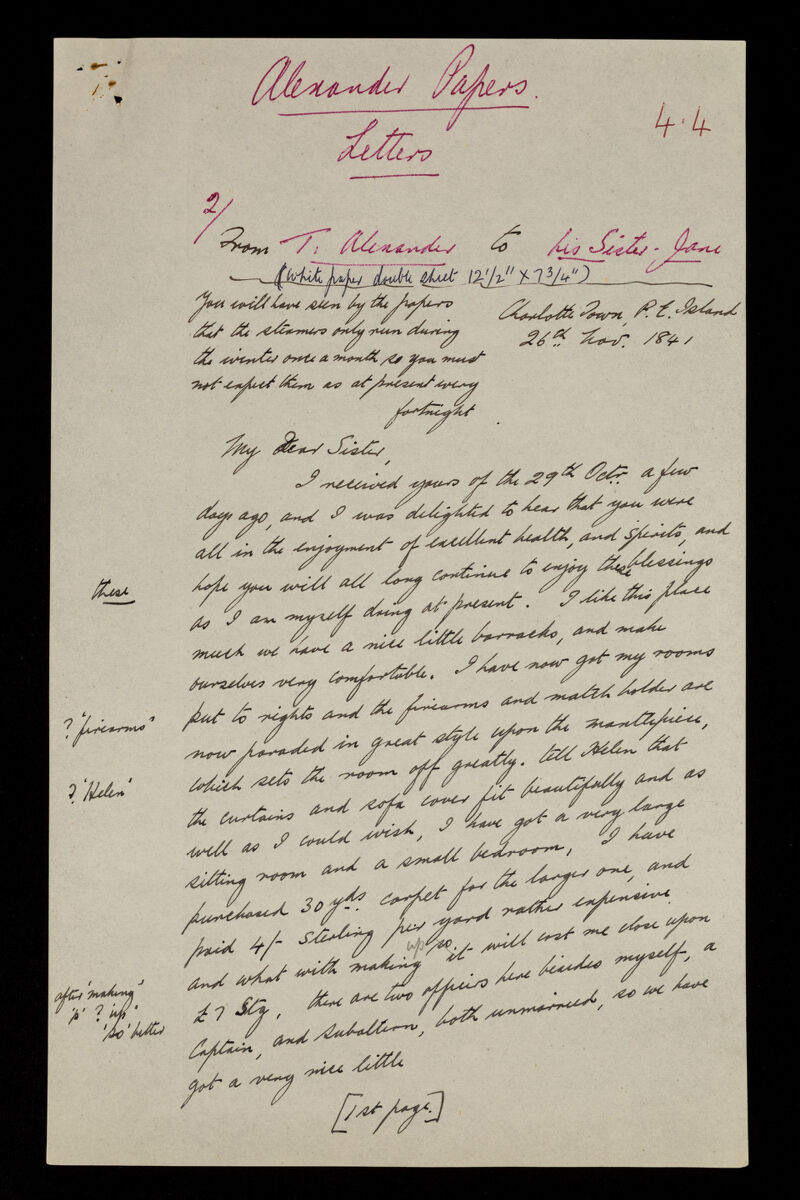 Alexander Papers.
4.4
Letters
2/
From T. Alexander to his Sister - Jane
(White paper double sheet 12 1/2" x 7 3/4")
You will have seen by the papers
that the steamers only run during
the winter once a month so you must
not expect them as at present every
fortnight.
Charlotte Town, P. E. Island
26th Nov. 1841
My Dear Sister,
I received yours of the 29th Octr. a few
days ago, and I was delighted to hear that you were
all in the enjoyment of excellent health, and spirits, and
hope you will all long continue to enjoy these blessings
these
as I am myself doing at present. I like this place
much we have a nice little barracks, and make
ourselves very comfortable. I have now got my rooms
put to rights and the firearms and match holder are
? "firearms"
now paraded in great style upon the mantlepiece,
which sets the room off greatly. tell Helen that
? 'Helen'
the curtains and sofa cover fit beautifully and as
well as I could wish, I have got a very large
sitting room and a small bedroom, I have
purchased 30 yds. carpet for the larger one, and
paid 4/- Sterling per yard rather expensive
and what with making up so it will cost me close upon
£7 Stg, there are two officers here besides myself, a
after 'making'
'p' ? 'up'
'so' better
Captain, and Subaltern, both unmarried, so we have
got a very nice little
[1st page.]